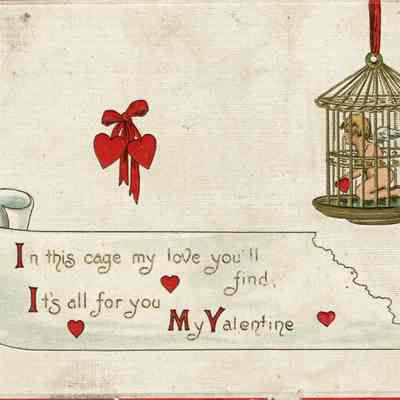 In this cage my love you'll
find,
It's all for you
My Valentine